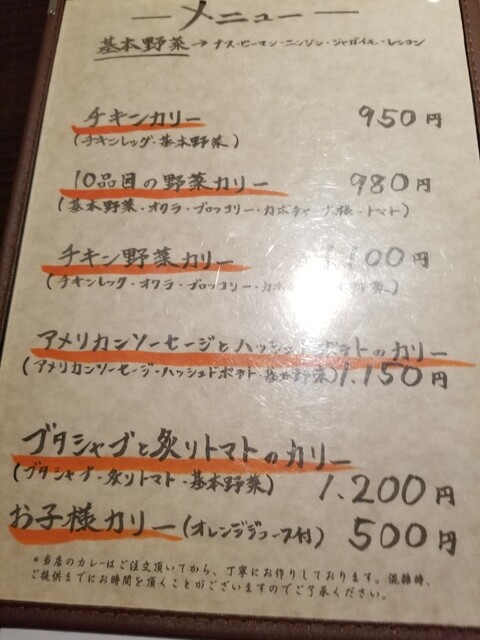 メニュー
基本野菜→ナス・ピーマン・ニンジン・ジャガイモ・レンコン
チキンカリー 950円
(チキンレッグ・基本野菜)
10品目の野菜カリー 980円
(基本野菜・オクラ・ブロッコリー・カボチャ・トマト)
チキン野菜カリー 1100円
(チキンレッグ・オクラ・ブロッコリー・カボ 野菜)
アメリカンソーセージとハッシュドポテトのカリー
(アメリカンソーセージ・ハッシュドポテト・基本野菜) 1.150円
ブタシャブと炙りトマトのカリー
(ブタシャブ・炙リトマト・基本野菜) 1.200円
お子様カリー(オレンジジュース付) 500円
*当店のカレーはご注文頂いてから、丁寧にお作りしております。混雑時、
ご提供までにお時間を頂くことがございますのでご了承ください。